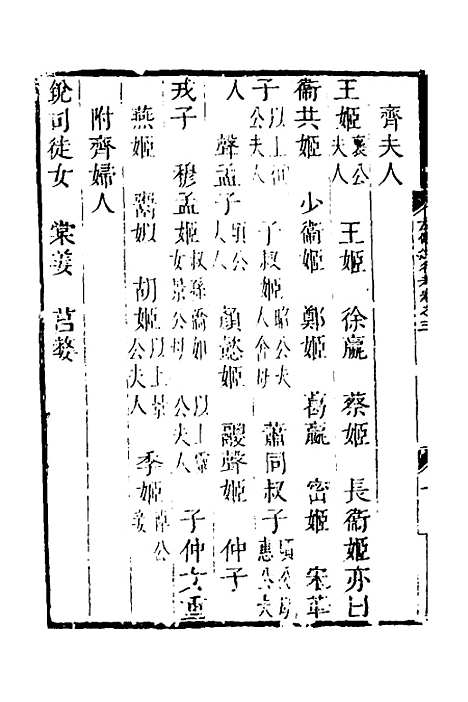 齊夫人
王姬襄公夫人 王姬 徐嬴 蔡姬 長衞姬亦曰
衞共姬 少衞姬 鄭姬 葛嬴 密姬 宋華
子以上桓公夫人 子叔姬昭公夫人舍母 蕭同叔子頃公母惠公夫
人 聲孟子頃公夫人 顏懿姬 鬷聲姬 仲子
戎子 穆孟姬叔孫僑如女景公母 以上靈公夫人 子仲
燕姬 鬻姒 胡姬以上景公夫人 季姬悼公妾
附齊婦人
銳司徒女 棠姜 莒嫠
卷之三
一